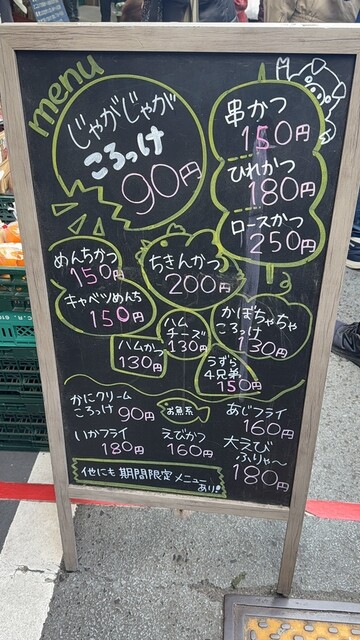 menu
じゃがじゃが
ころっけ
90円
串かつ
150円
ひれかつ
180円
ロースかつ
250円
めんちかつ
150円
キャベツめんち
150円
ちきんかつ
200円
ハムかつ
130円
ハム
チーズ
130円
かぼちゃちゃ
ころっけ
130円
うずら
4兄弟
150円
かにクリーム
ころっけ 90円
お魚系
あじフライ
160円
いかフライ
180円
えびかつ
160円
大えび
ふりゃ〜
180円
他にも期間限定メニュー
あり!